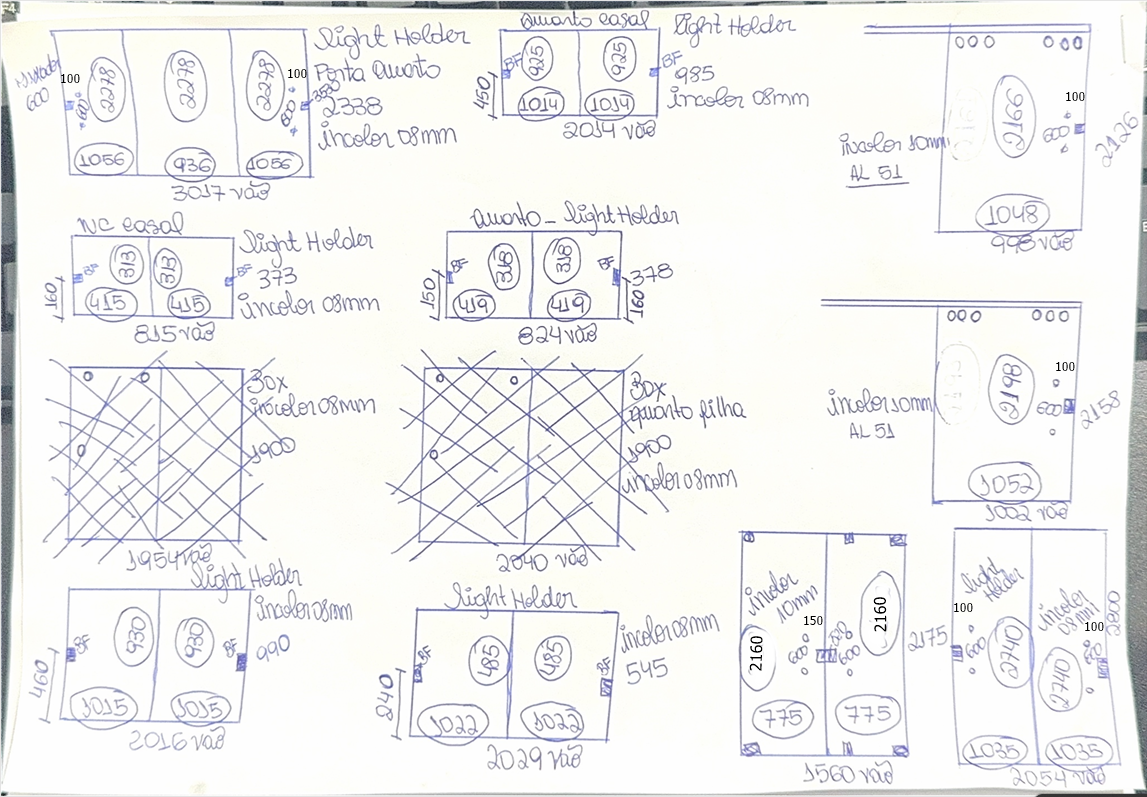 Light Holder
Porta Quarto
2338
incolor 08mm
600
100
2278
600
1056
2278
936
2278
100
600
1056
3017 vão
Quarto casal
BF
925
1014
925
1014
BF
450
2014 vão
Light Holder
985
incolor 08mm
incolor 10mm
AL 51
2166
100
600
2126
1048
998 vão
WC casal
BF
313
415
313
415
BF
160
815 vão
Light Holder
373
incolor 08mm
Quarto - Light Holder
BF
318
419
318
419
BF
378
150
160
824 vão
incolor 10mm
AL 51
2198
100
600
2158
1052
1002 vão
Box
incolor 08mm
1900
1954 vão
Box
quarto filha
1900
incolor 08mm
2040 vão
Light Holder
BF
930
1015
930
1015
BF
460
incolor 08mm
990
2016 vão
Light Holder
BF
485
1022
485
1022
BF
240
incolor 08mm
545
2029 vão
incolor
10mm
2160
150
600
775
2160
600
775
2175
1560 vão
Light
Holder
100
600
2740
1035
incolor
08mm
100
2740
1035
2800
2054 vão